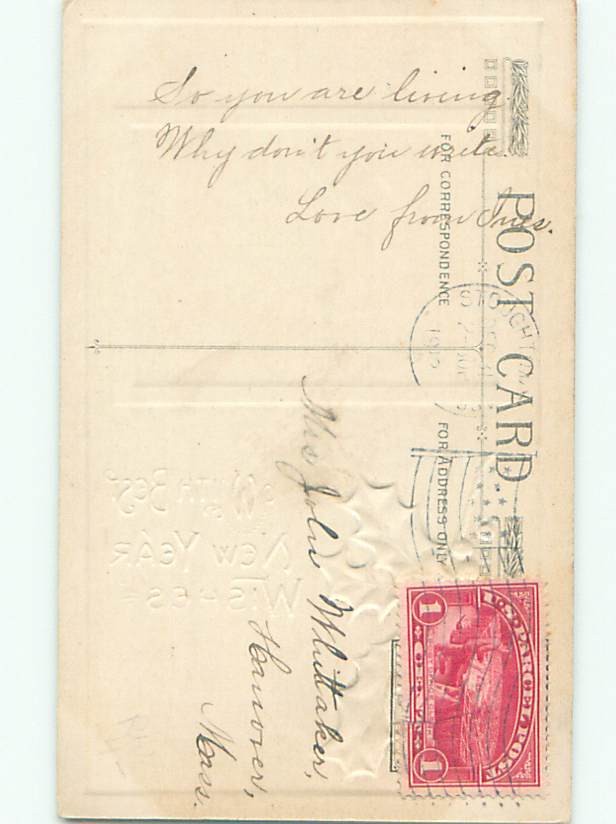 So you are living.
Why don't you write.
Love from Ines.
POST CARD
FOR CORRESPONDENCE
FOR ADDRESS ONLY
1912
Mrs John Whittaker,
Hanover,
Mass.
U.S. PARCEL POST
1 CENT 1
WITH BEST
NEW YEAR
WISHES